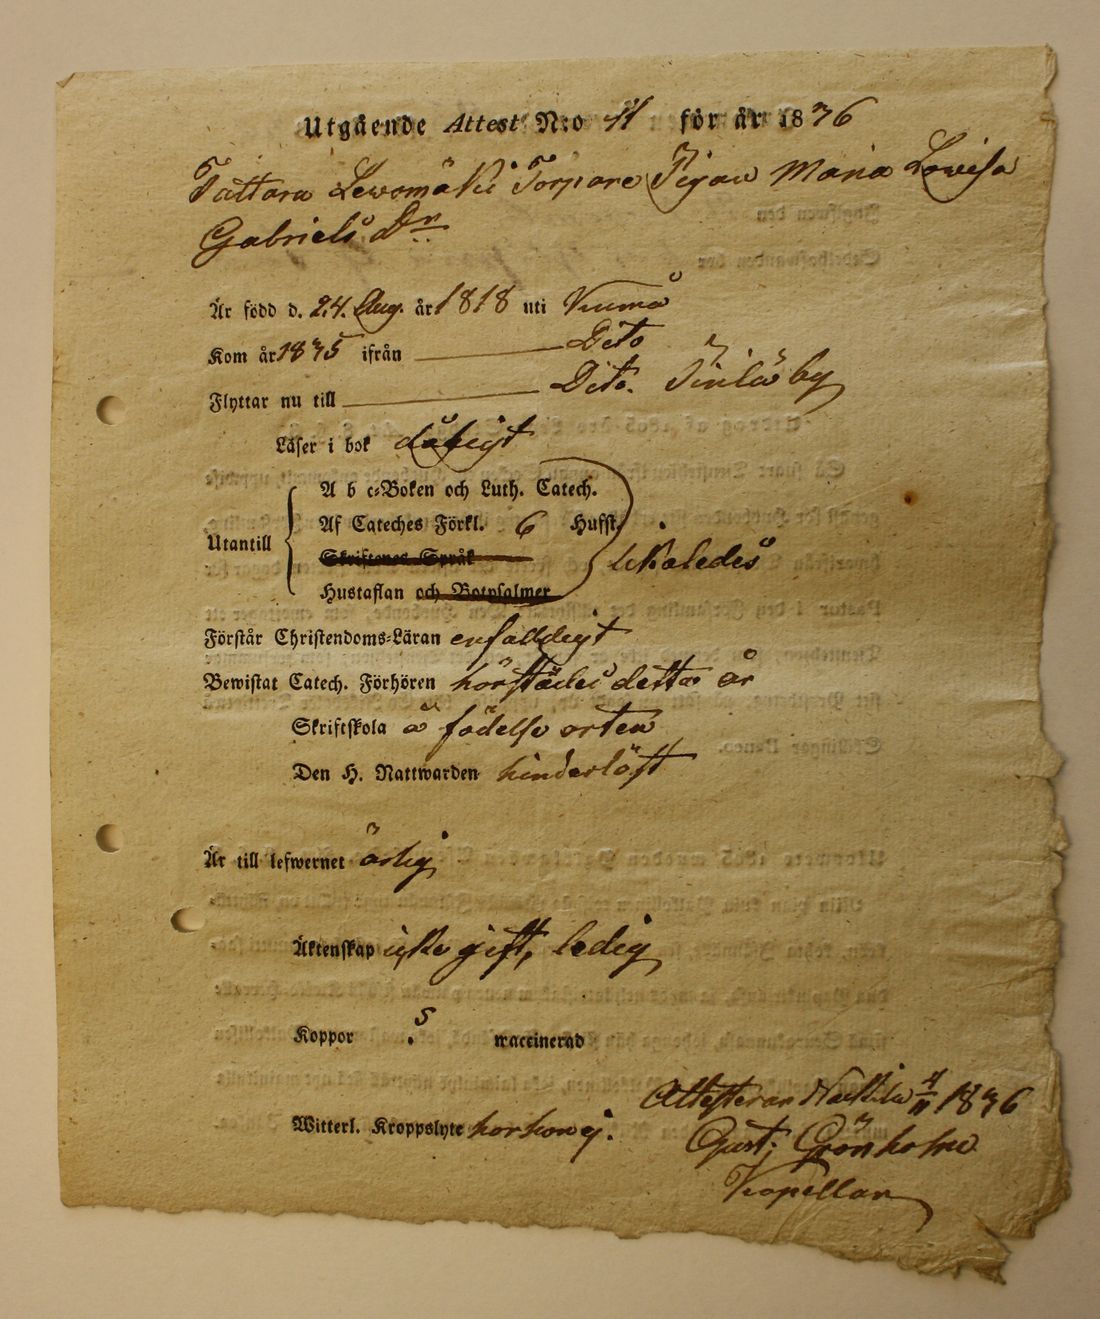 Utgående Attest N:o 11 för år 1836
Tattara Lewomäki Torpare Pigan Maria Lowisa
Gabriels Dr
Är född d. 24. Aug. år 1818 uti
Kom år 1835 ifrån Dito
Flyttar nu till Dito.
Läser i bok dåligt
A b c-Boken och Luth. Catech.
Af Cateches Förkl. 6 Hufst.
Utantill likaledes
Skriftenes Språk
Hustaflan och Botpsalmer
Förstår Christendoms-Läran enfaldigt
Bewistat Catech. Förhören härstädes detta år
Skriftskola å födelse orten
Den H. Nattwarden hinderlöst
Är till lefwernet ärlig
Äktenskap icke gift, ledig
Koppor waccinerad
Witterl. Kroppslyte har hon ej.
Attesterar Nackila 4/11 1836
Gust: Grönholm
Kapellan